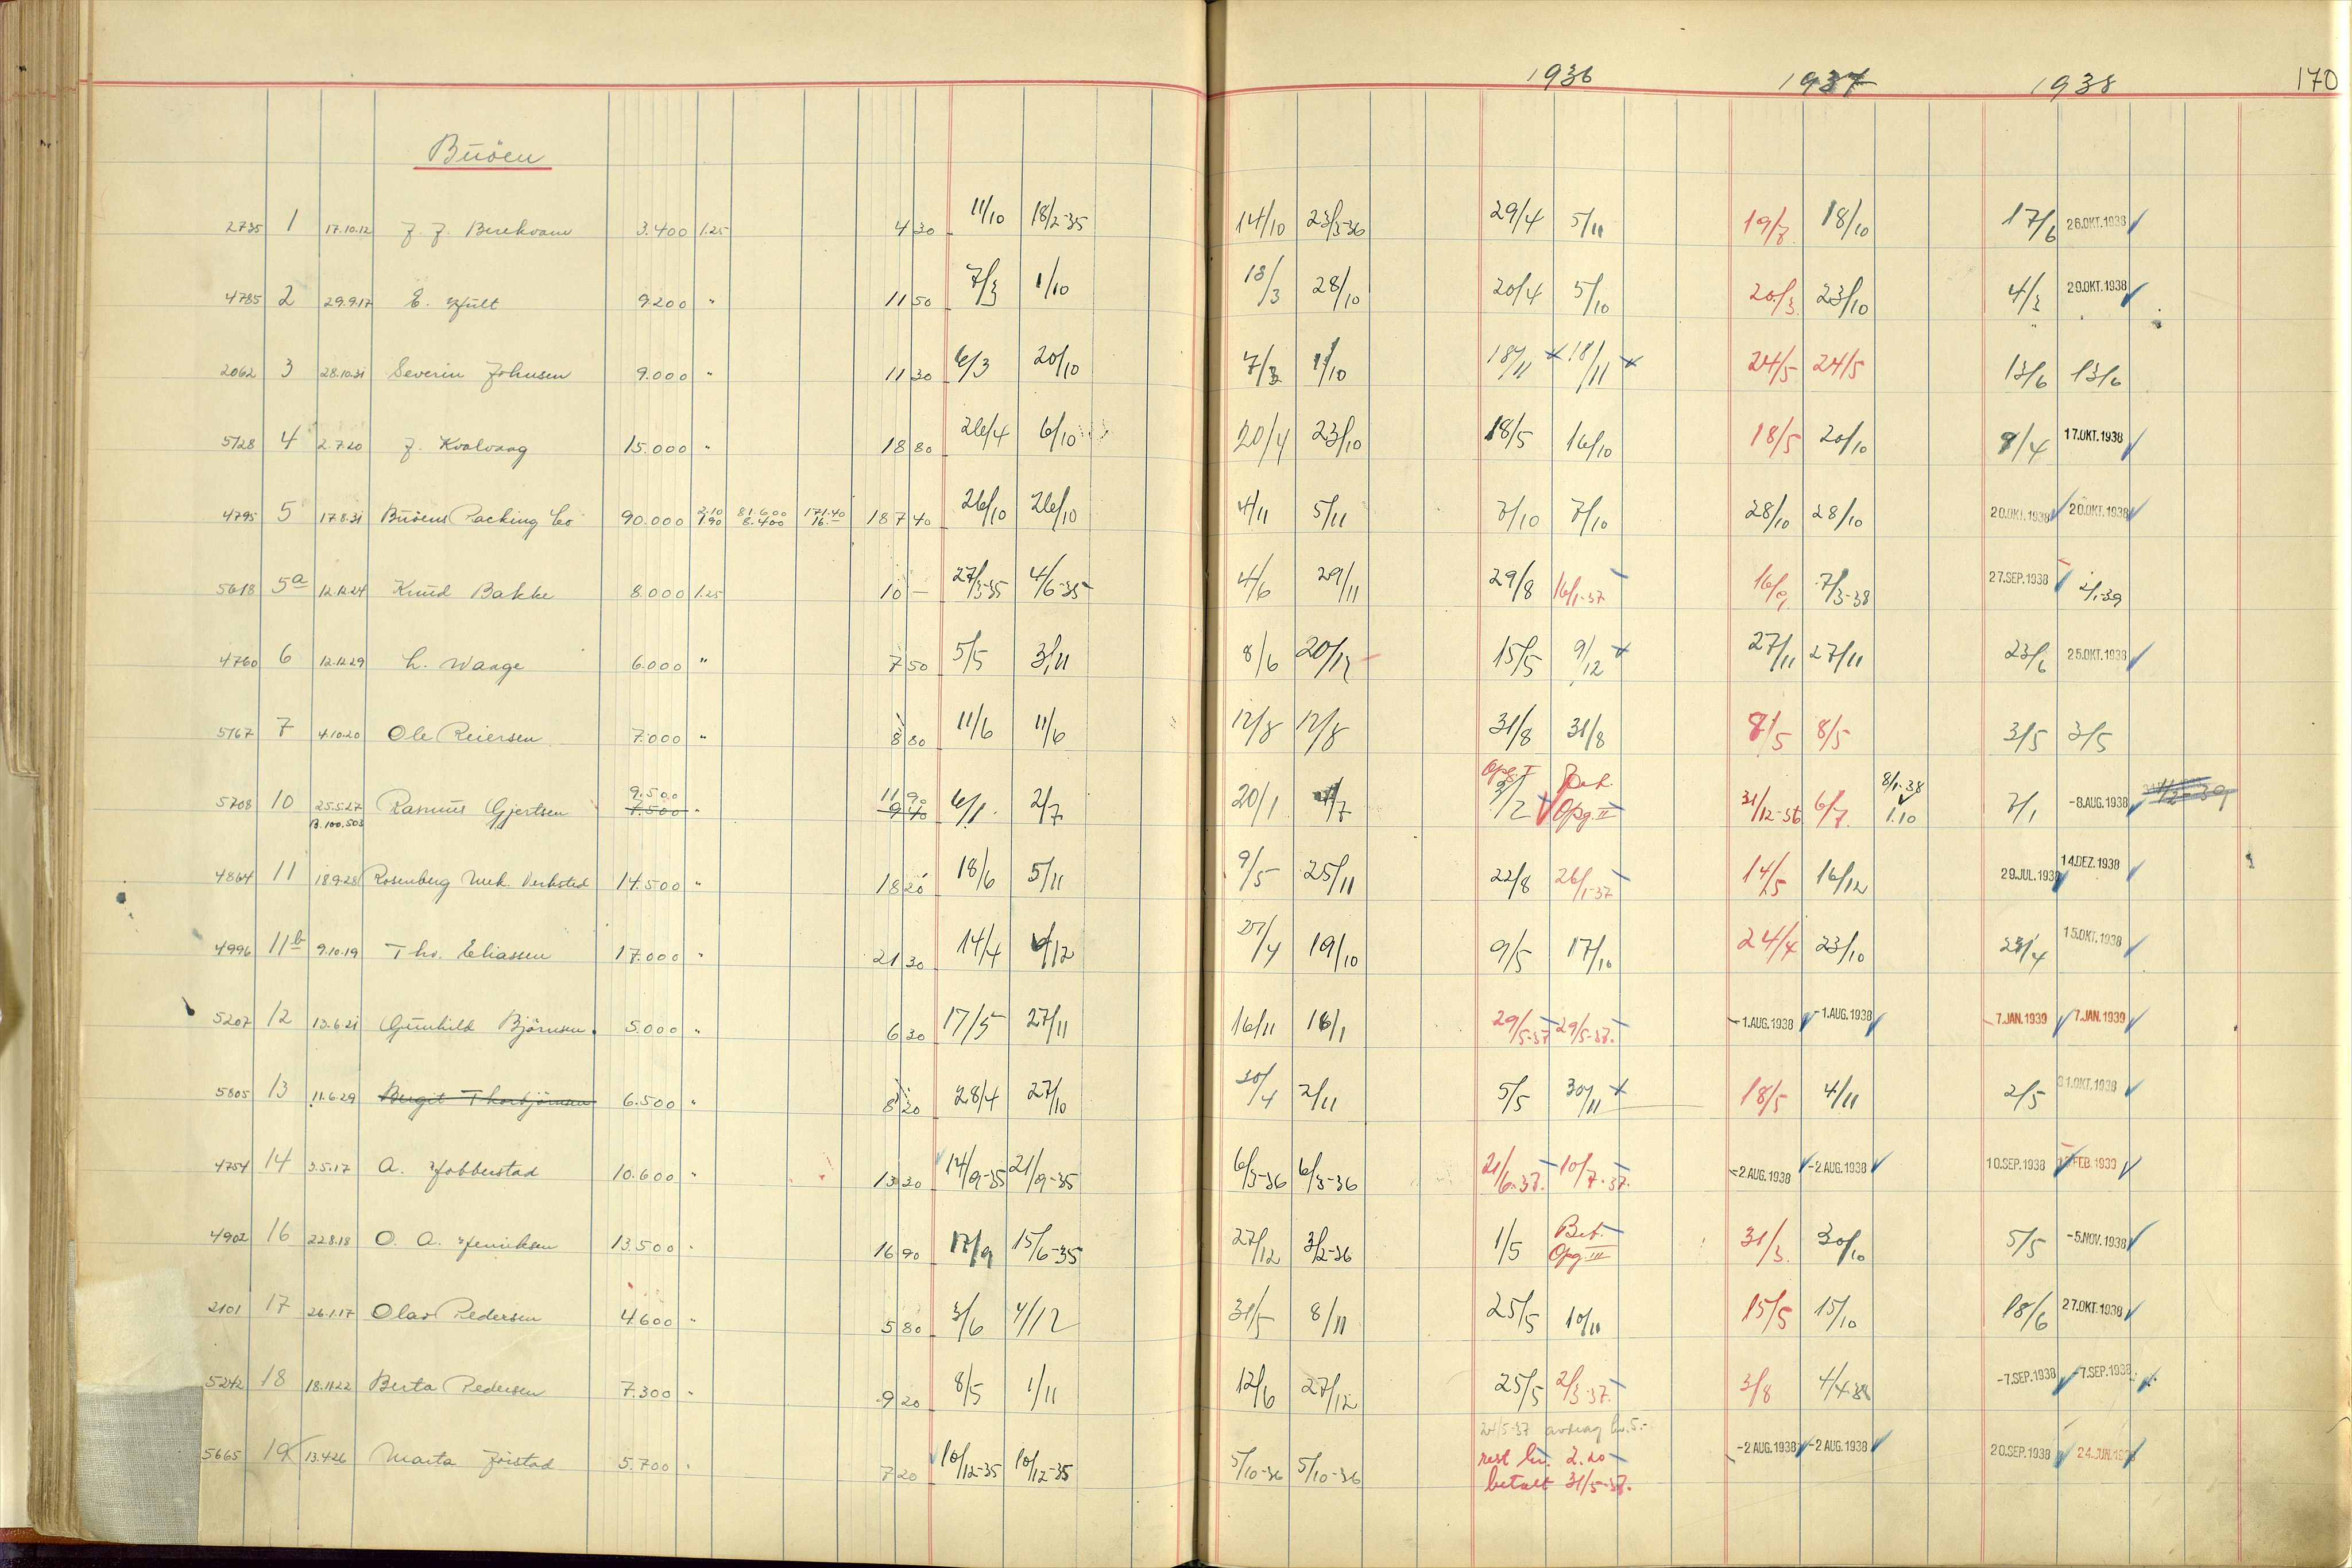 1936 1937 1938 170
Buöen
2735 1 17.10.12 J. J. 3.400 1.25 4 30 11/10 18/2-35 14/10 23/3-36 29/4 5/11 19/7 18/10 17/6 26.OKT.1938
4785 2 29.9.17 E. Hult 9.200 " 11 50 7/3 1/10 18/3 28/10 20/4 5/10 20/3 23/10 4/3 29.OKT.1938
2062 3 28.10.31 Severin Johnsen 9.000 " 11 30 6/3 20/10 7/3 1/10 18/11 x 18/11 x 24/5 24/5 13/6 13/6
5728 4 2.7.20 J. Kvalvaag 15.000 " 18 80 26/4 6/10 20/4 23/10 18/5 16/10 18/5 20/10 8/4 17.OKT.1938
4795 5 17.8.31 Buöens Packing Co 90.000 2.10 1.90 81.600 8.400 171.40 16.- 187 40 26/10 26/10 4/11 5/11 7/10 7/10 28/10 28/10 20.OKT.1938 20.OKT.1938
5618 5a 12.12.24 Knud Bakke 8.000 1.25 10 - 27/3-35 4/6-35 4/6 29/11 29/8 16/1-37 16/9 7/3-38 27.SEP.1938 2/1-39
4760 6 12.12.29 L. Waage 6.000 " 7 50 5/5 3/11 8/6 20/12 15/5 9/12 x 27/11 27/11 23/6 25.OKT.1938
5767 7 4.10.20 Ole Reiersen 7.000 " 8 80 11/6 11/6 12/8 12/8 31/8 31/8 8/5 8/5 3/5 3/5
9.500 11 90 Opg. I 8/1-38
5708 10 25.5.27 Rasmus Gjertsen 7.500 " 9 40 6/1 2/7 20/1 4/7 3/2 Opg. II 31/12-36 6/7 1.10 7/1 -8.AUG.1938
B.100.503
4864 11 18.9.28 Rosenberg Mek. Verksted 14.500 " 18 20 18/6 5/11 9/5 25/11 22/8 26/1-37 14/5 16/12 29.JUL.1938 14.DEZ.1938
4996 11b 9.10.19 Thv. Eliassen 17.000 " 21 30 14/4 4/12 27/4 19/10 9/5 17/10 24/4 23/10 23/4 15.OKT.1938
5207 12 13.6.21 Gunhild Björnsen 5.000 " 6 30 17/5 27/11 16/11 16/1 29/5-37 29/5-37. -1.AUG.1938 -1.AUG.1938 7.JAN.1939 7.JAN.1939
5805 13 11.6.29 Birgit Thorbjörnsen 6.500 " 8 20 28/4 27/10 30/4 2/11 5/5 30/11 x 18/5 4/11 2/5 31.OKT.1938
4754 14 3.5.17 A. Jobberstad 10.600 " 13 20 14/9-35 21/9-35 6/3-36 6/3-36 21/6-37. 10/7-37. -2.AUG.1938 -2.AUG.1938 10.SEP.1938 FEB.1939
4902 16 22.8.18 O. A. Henriksen 13.500 " 16 90 17/9 15/6-35 27/12 3/2-36 1/5 Bet. Opg. III 31/3. 30/10 5/5 -5.NOV.1938
2101 17 26.1.17 Olav Pedersen 4.600 " 5 80 3/6 4/12 31/5 8/11 25/5 10/11 15/5 15/10 18/6 27.OKT.1938
5242 18 18.11.22 Berta Pedersen 7.300 " 9 20 8/5 1/11 12/6 27/12 25/5 2/3-37. 3/8 4/4-38 -7.SEP.1938 -7.SEP.1938
24/5-37 avdrag kr. 5.-
5665 19 13.4.26 Marta Jöistad 5.700 " 7 20 10/12-35 10/12-35 5/10-36 5/10-36 rest kr. 2.20 -2.AUG.1938 -2.AUG.1938 20.SEP.1938 24.JUN.
betalt 31/5-37.